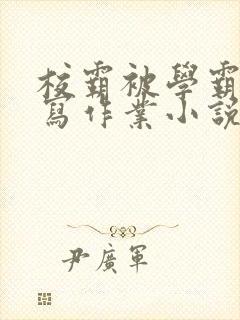 校霸被學霸
寫作業小說
尹廣軍